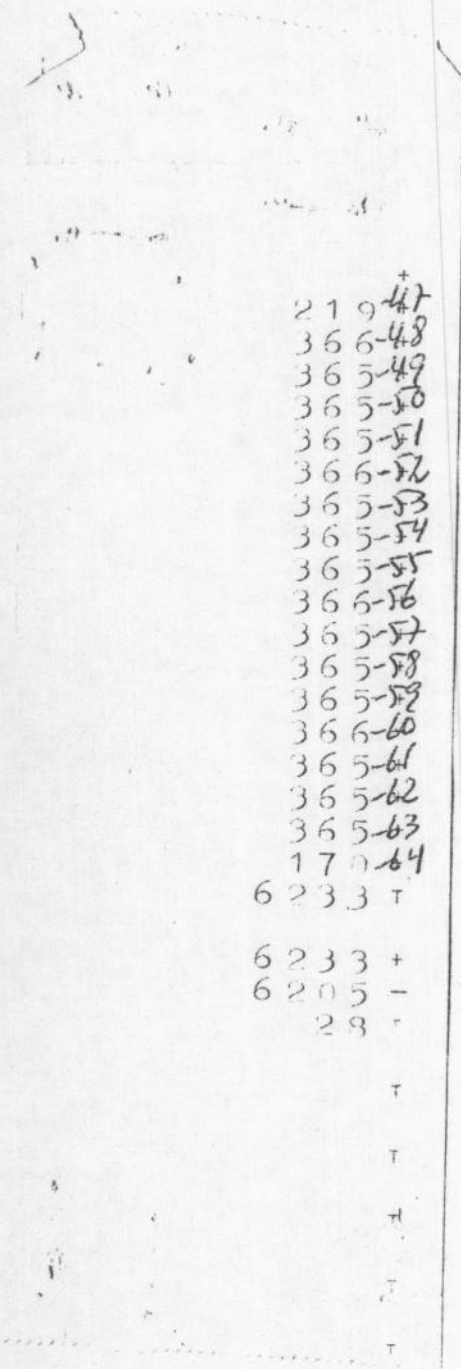 +
219-47
366-48
365-49
365-50
365-51
366-52
365-53
365-54
365-55
366-56
365-57
365-58
365-59
366-60
365-61
365-62
365-63
170-64
6233 T
6233 +
6205 -
28 T
T
T
T
T
T